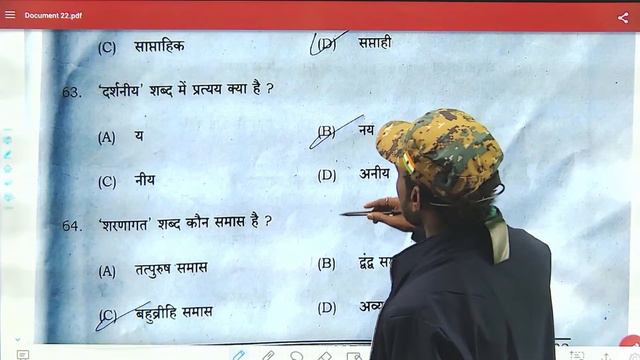 Document 22.pdf
(C) साप्ताहिक (D) सप्ताही
63. 'दर्शनीय' शब्द में प्रत्यय क्या है ?
(A) य (B) नय
(C) नीय (D) अनीय
64. 'शरणागत' शब्द कौन समास है ?
(A) तत्पुरुष समास (B) द्वंद्व
(C) बहुव्रीहि समास (D)